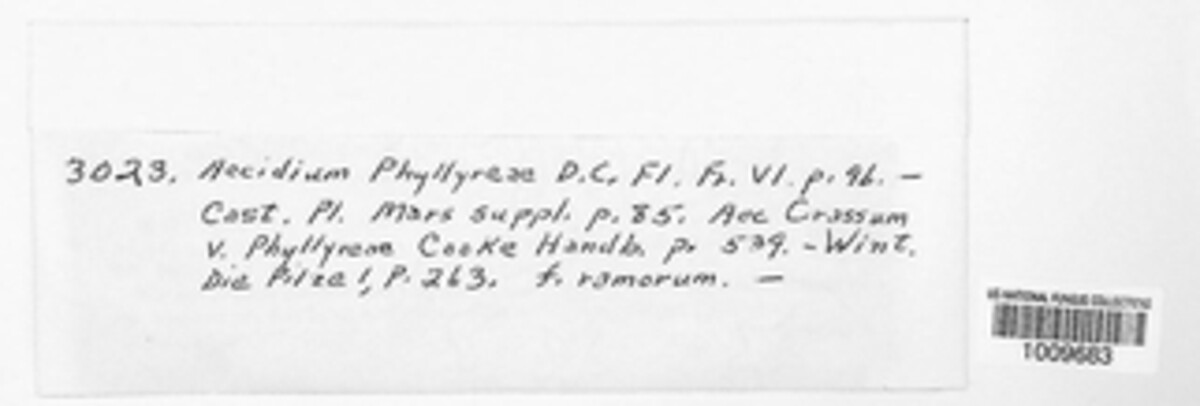 3023. Aecidium Phyllyreae D.C. Fl. Fr. VI. p. 96. —
Cast. Pl. Mars suppl. p. 85. Aec Crassum
v. Phyllyreae Cooke Handb. p. 539. - Wint.
Die Pilze 1, P. 263. f. ramorum. —
US NATIONAL FUNGUS COLLECTIONS
1009683